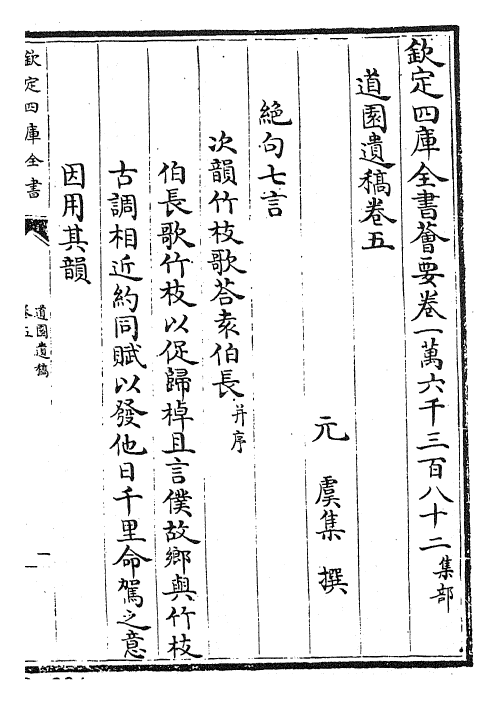 欽定四庫全書薈要卷一萬六千三百八十二集部
道園遺稿卷五
元 虞集 撰
絕句七言
次韻竹枝歌荅袁伯長并序
伯長歌竹枝以促歸棹且言僕故鄉與竹枝
古調相近約同賦以發他日千里命駕之意
因用其韻
欽定四庫全書
道園遺稿
卷五
一